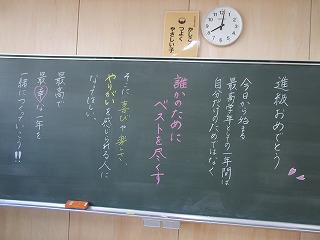 かしこく
つよく
やさしい子
進級おめでとう
今日から始まる
最高学年としての一年間は
自分だけのためではなく
誰かのために
ベストを尽くす
そこに喜びや楽しさ、
やりがいを感じられる人に
なってほしい。
最高で
最幸な一年を
一緒につくっていこう!!